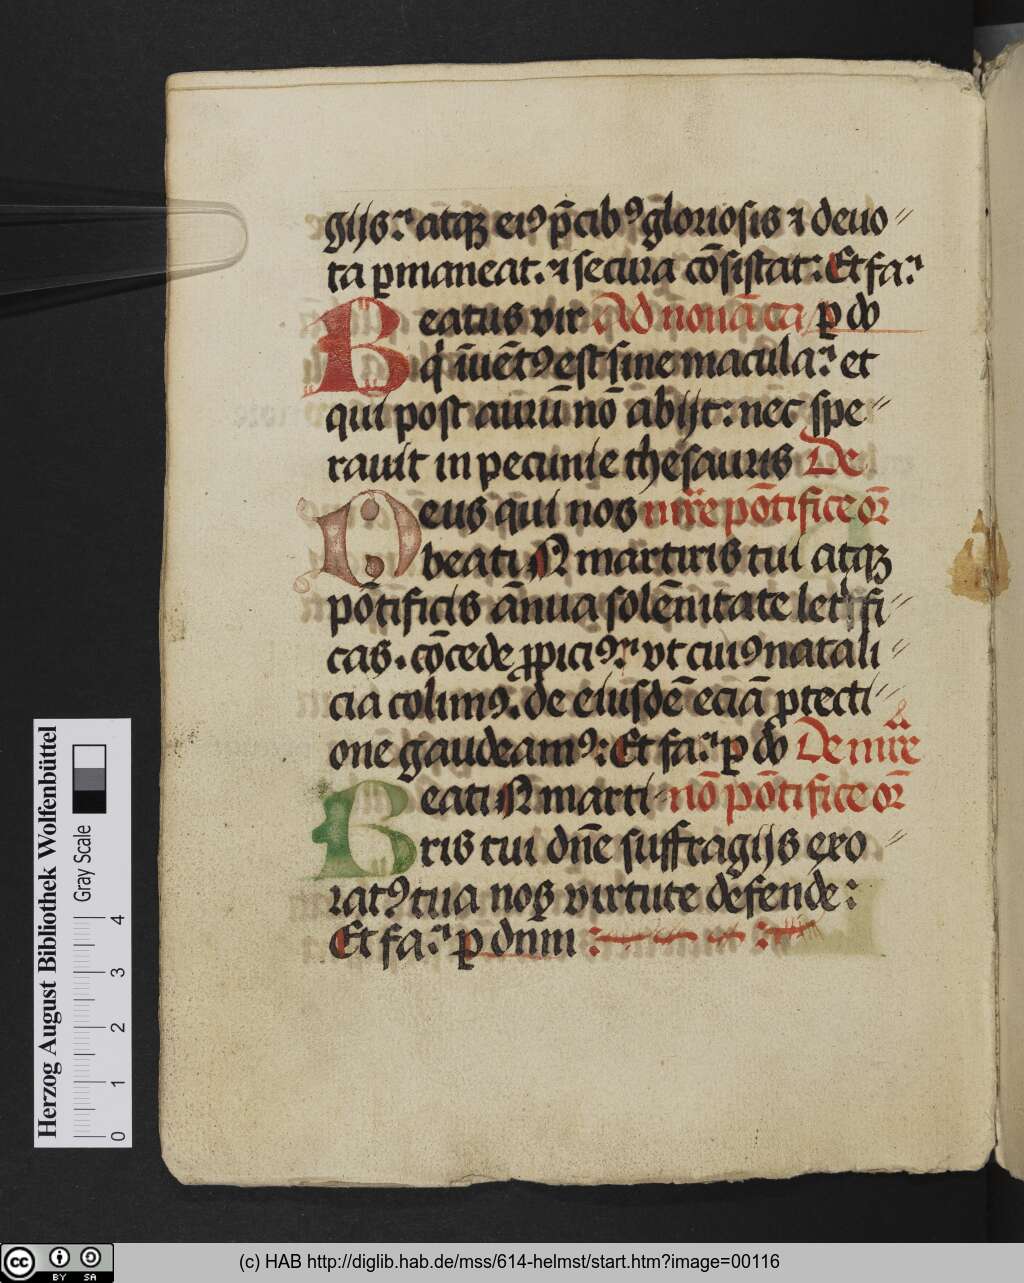 gijs. atqꝫ eiꝰ p̄cibꝰ gloriosis ⁊ deuo
ta ꝑmaneat. ⁊ secura cōsistat: Et fa.
Beatus vir Ad nonā ca ꝑ dō
q̇ īuēt᷒ est sine macula. et
qui post aurū nō abijt: nec spe
rauit in pecunie thesauris De
Deus qui nos mr̄e pōtifice or̄
beati N martiris tui atqꝫ
pōtificis ānua solēnitate letifi
cas. cōcede ꝓpiciꝰ. vt cuiꝰ natali
cia colimꝰ. de eiusdē eciā ꝓtecti
one gaudeamꝰ: Et fa. ꝑ dō De mr̄e
Beati N marti nō pōtifice or̄
ris tui dn̄e suffragijs exo
ratꝰ tua nos virtute defende:
Et fa. ꝑ dnm
Herzog August Bibliothek Wolfenbüttel
Gray Scale
0 1 2 3 4
cc BY SA
(c) HAB http://diglib.hab.de/mss/614-helmst/start.htm?image=00116